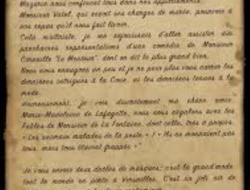 Magasin nous renferment tous dans nos appartements.
Monsieur Vatel, qui reçut ses charges de marée, pourvoie à
nos repas qu'il nous fait livrer.
Cette maîtrise, je me réjouissais d'aller assister des
prochaines représentations d'une comédie de Monsieur
Corneille "Le Menteur", dont on dit le plus grand bien.
Nous nous ennuyons un peu et je ne peux plus vous conter les
dernières intrigues à la Cour, ni les dernières tenues à la
mode.
Heureusement, je vois discrètement ma chère amie,
Marie-Madeleine de Lafayette, nous nous régalons avec les
Fables de Monsieur de La Fontaine, dont celle, très à propos,
« Les animaux malades de la peste » ! « Ils ne mouraient pas
tous, mais tous étaient frappés ».
Je vous envoie deux drôles de masques ; c'est la grand mode
tout le monde en porte à Versailles. C'est un joli air de